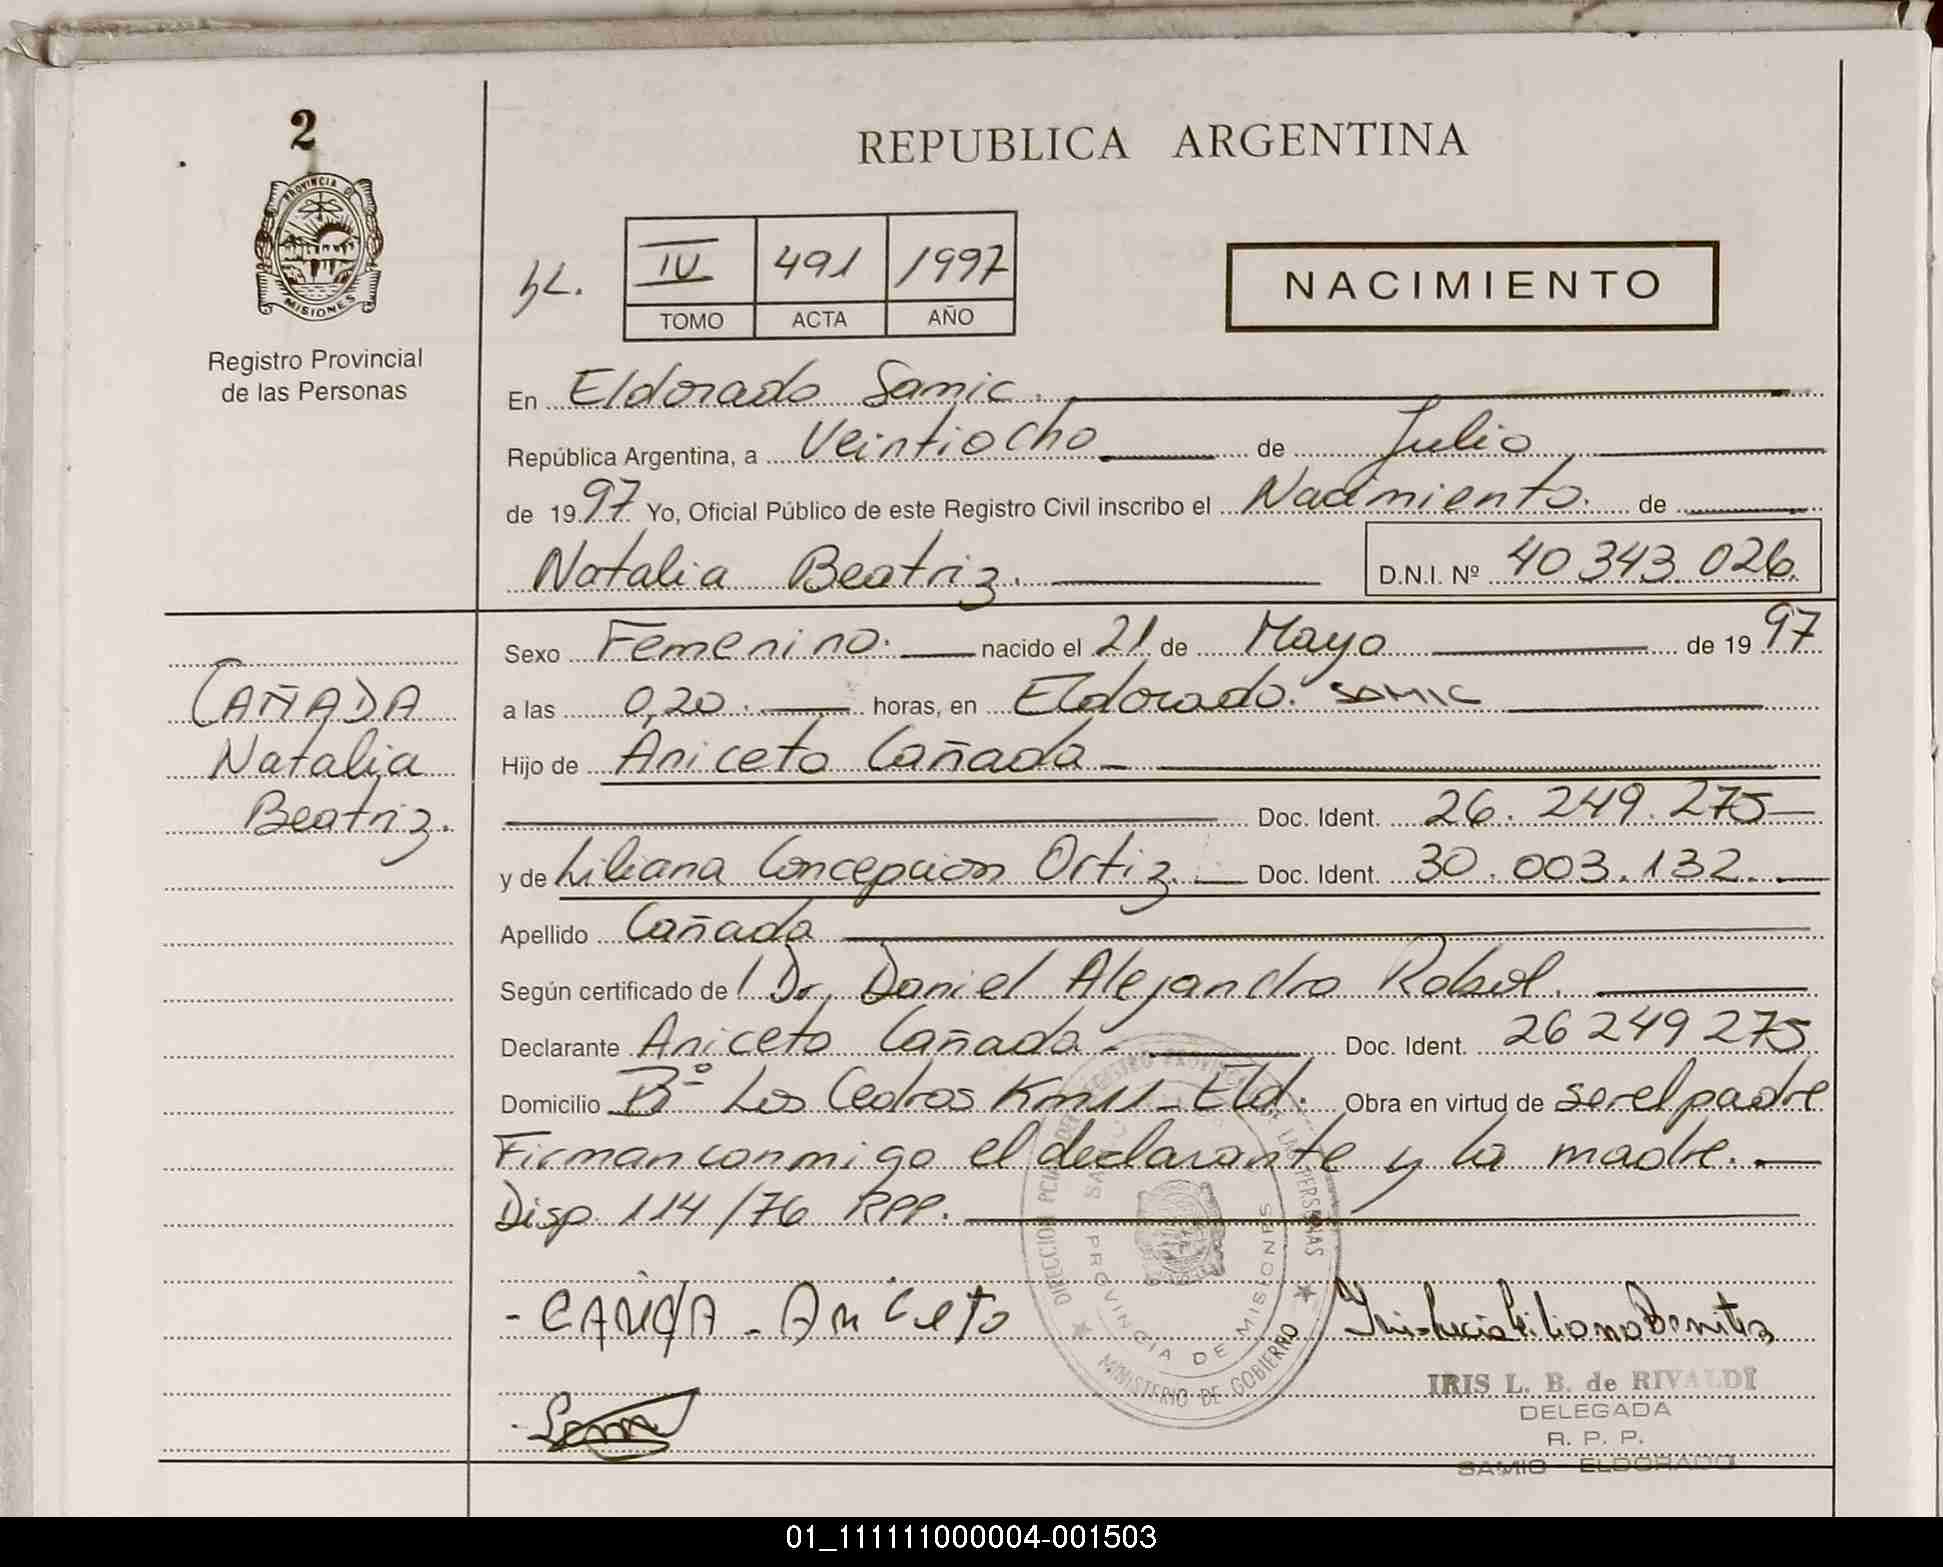 2
PROVINCIA DE
MISIONES
Registro Provincial
de las Personas
REPUBLICA ARGENTINA
IV 491 1997
TOMO ACTA AÑO
NACIMIENTO
En Eldorado Samic.
República Argentina, a Veintiocho de Julio
de 1997 Yo, Oficial Público de este Registro Civil inscribo el Nacimiento. de
Natalia Beatriz. D.N.I. Nº 40 343 026.
CAÑADA
Natalia
Beatriz.
Sexo Femenino. nacido el 21 de Mayo de 1997
a las 0,20. horas, en Eldorado. SAMIC
Hijo de Aniceto Cañada
Doc. Ident. 26.249.275
y de Liliana Concepcion Ortiz. Doc. Ident. 30.003.132.
Apellido Cañada
Según certificado de l Dr. Daniel Alejandro
Declarante Aniceto Cañada Doc. Ident. 26 249 275
Domicilio Bº Los Cedros Km 11 - Eld. Obra en virtud de ser el padre
Firman conmigo el declarante y la madre.
Disp. 114/76 RPP.
Aniceto
DIRECCION REGISTRO PROVINCIAL DE LAS PERSONAS
PROVINCIA DE MISIONES
MINISTERIO DE GOBIERNO
IRIS L. B. de RIVALDI
DELEGADA
R. P. P.
SAMIC ELDORADO
01_111111000004-001503